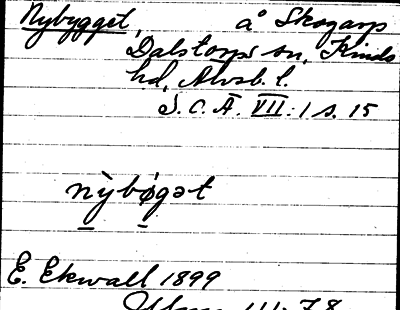 Nybygget, å Skogarp
Dalstorps sn, Kinds
hd, Älvsb. l.
S. O. Ä. VII: 1 s. 15
nỳbøgət
E. Ekwall 1899